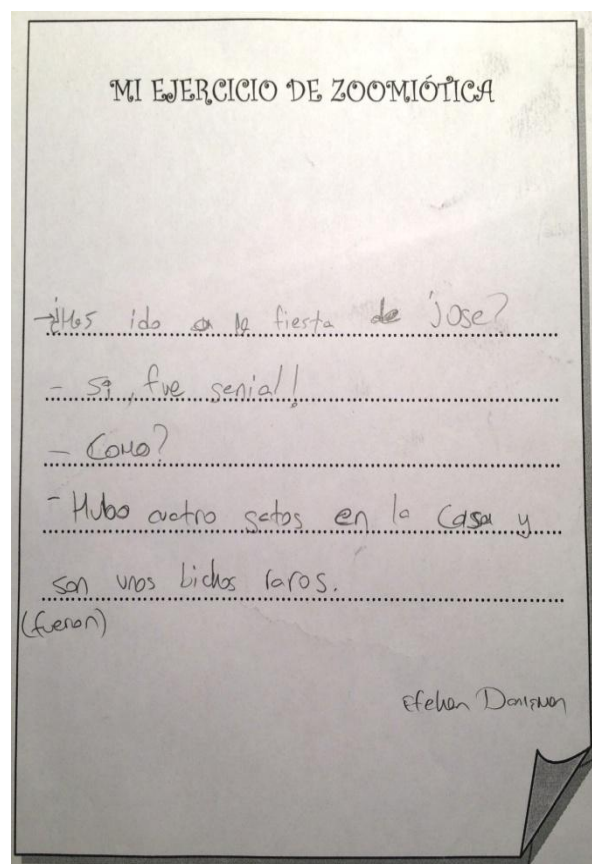 MI EJERCICIO DE ZOOMIÓTICA
-¿Has ido a la fiesta de Jose?
- Si, fue genial!
- Como?
- Hubo cuatro gatos en la casa y
son unos bichos raros.
(fueron)